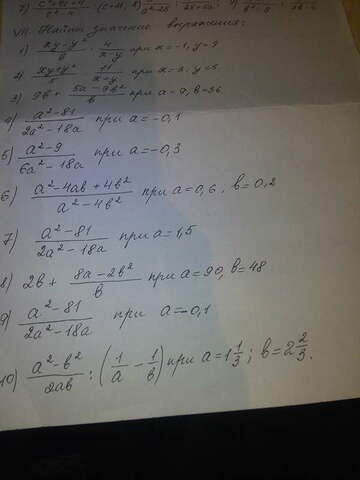 VII. Найти значение выражения:
1) (xy-y²)/ · 4/(x-y) при x=-1, y=9
2) (xy+y²)/ · /(x+y) при x= , y=5
3) 9b + (5a-9b²)/b при a=9, b=36
4) (a²-81)/(2a²-18a) при a=-0,1
5) (a²-9)/(6a²-18a) при a=-0,3
6) (a²-4ab+4b²)/(a²-4b²) при a=0,6; b=0,2
7) (a²-81)/(2a²-18a) при a=1,5
8) 2b + (8a-2b²)/b при a=90, b=48
9) (a²-81)/(2a²-18a) при a=-0,1
10) (a²-b²)/2ab : (1/a - 1/b) при a=1 1/3; b=2 2/3.